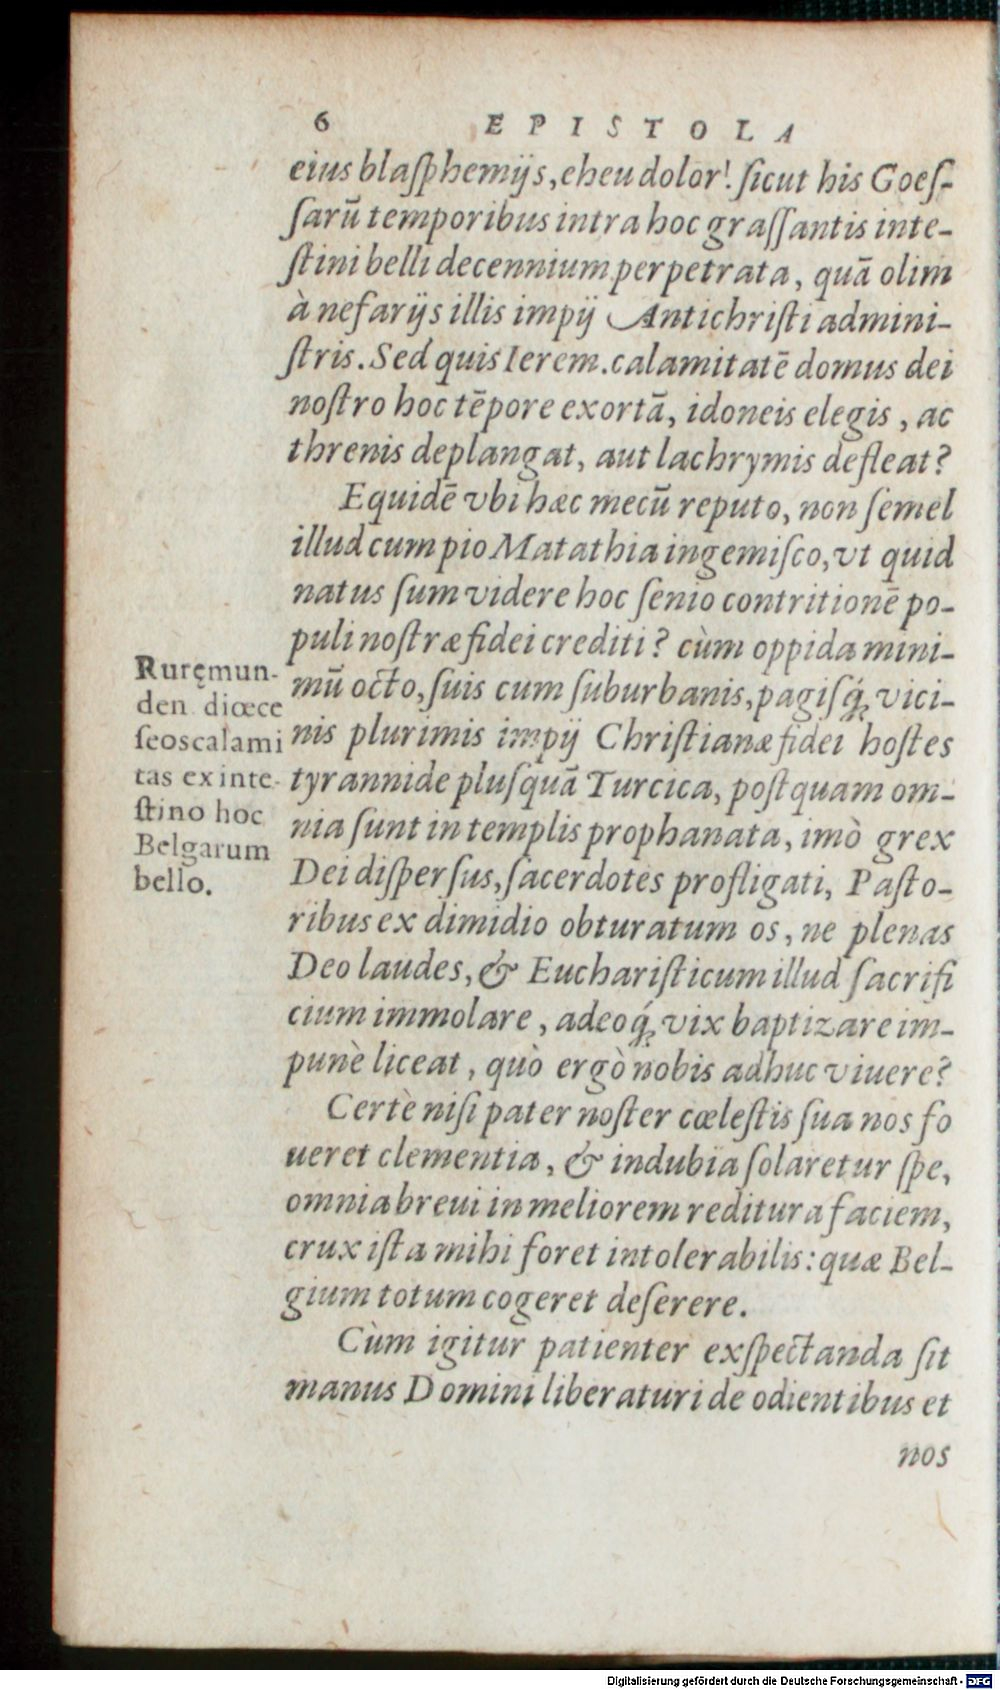 6 EPISTOLA
eius blaſphemijs, eheu dolor! ſicut his Goeſ-
ſarū temporibus intra hoc graſſantis inte-
ſtini belli decennium perpetrata, quā olim
à nefarijs illis impij Antichriſti admini-
ſtris. Sed quis Ierem. calamitatē domus dei
noſtro hoc tēpore exortā, idoneis elegis, ac
threnis deplangat, aut lachrymis defleat?
Equidē vbi hæc mecū reputo, non ſemel
illud cum pio Matathia ingemiſco, vt quid
natus ſum videre hoc ſenio contritionē po-
puli noſtræ fidei crediti? cùm oppida mini-
mū octo, ſuis cum ſuburbanis, pagiſq́; vici-
nis plurimis impij Chriſtianæ fidei hostes
tyrannide pluſquā Turcica, poſtquam om-
nia ſunt in templis prophanata, imò grex
Dei diſperſus, ſacerdotes profligati, Paſto-
ribus ex dimidio obturatum os, ne plenas
Deo laudes, & Euchariſticum illud ſacrifi
cium immolare, adeoq́; vix baptizare im-
punè liceat, quò ergò nobis adhuc viuere?
Certè niſi pater noſter cœleſtis ſua nos fo
ueret clementia, & indubia ſolaretur ſpe,
omnia breui in meliorem reditura faciem,
crux iſta mihi foret intolerabilis: quæ Bel-
gium totum cogeret deſerere.
Cùm igitur patienter exſpectanda ſit
manus Domini liberaturi de odientibus et
nos
Ruręmun-
den diœce
ſeos calami
tas ex inte-
ſtino hoc
Belgarum
bello.
Digitalisierung gefördert durch die Deutsche Forschungsgemeinschaft - DFG